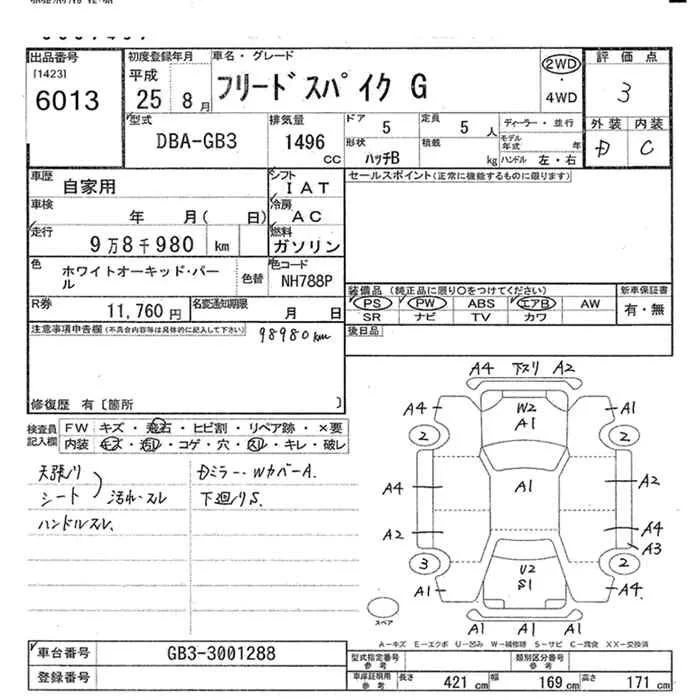 出品番号
[1423]
6013
初度登録年月
平成
25年 8月
車名・グレード
フリードスパイク G
2WD
・
4WD
評価点
3
外装 内装
D C
型式
DBA-GB3
排気量
1496
CC
ドア
5
定員
5 人
形状
ハッチB
積載
kg
ディーラー・並行
モデル年式 年
ハンドル 左・右
車歴
自家用
シフト
IAT
車検
年 月( 日)
冷房
AC
走行
9万8千980 km
燃料
ガソリン
色
ホワイトオーキッド・パール
色替
色コード
NH788P
R券
11,760 円
名変通知期限
月 日
セールスポイント(正常に機能するものに限ります)
装備品 (純正品に限り〇をつけてください)
PS PW ABS エアB AW
SR ナビ TV カワ
新車保証書
有・無
後日品
注意事項申告欄(不具合内容等は具体的に記入して下さい)
98980km
修復歴 有〔箇所 〕
検査員
記入欄
FW キズ・飛石・ヒビ割・リペア跡・×要
内装 キズ・汚れ・コゲ・穴・スレ・キレ・破レ
天張り
シート
汚れ・スレ
ハンドルスレ
Dミラー・WカバーA.
下廻りS.
A4 下スリ A2
A4 W2 A1
A1
2 2
A4 A1 A2
A2 A4
A3
3 2
A1 U2 A4
S1
A1 A1 A1
スペア
A-キズ E-エクボ U-凹み W-補修跡 S-サビ C-腐食 XX-交換済
車台番号
GB3-3001288
登録番号
型式指定番号
参考
類別区分番号
参考
車庫証明用
参考
長さ 421 cm 幅 169 cm 高さ 171 cm